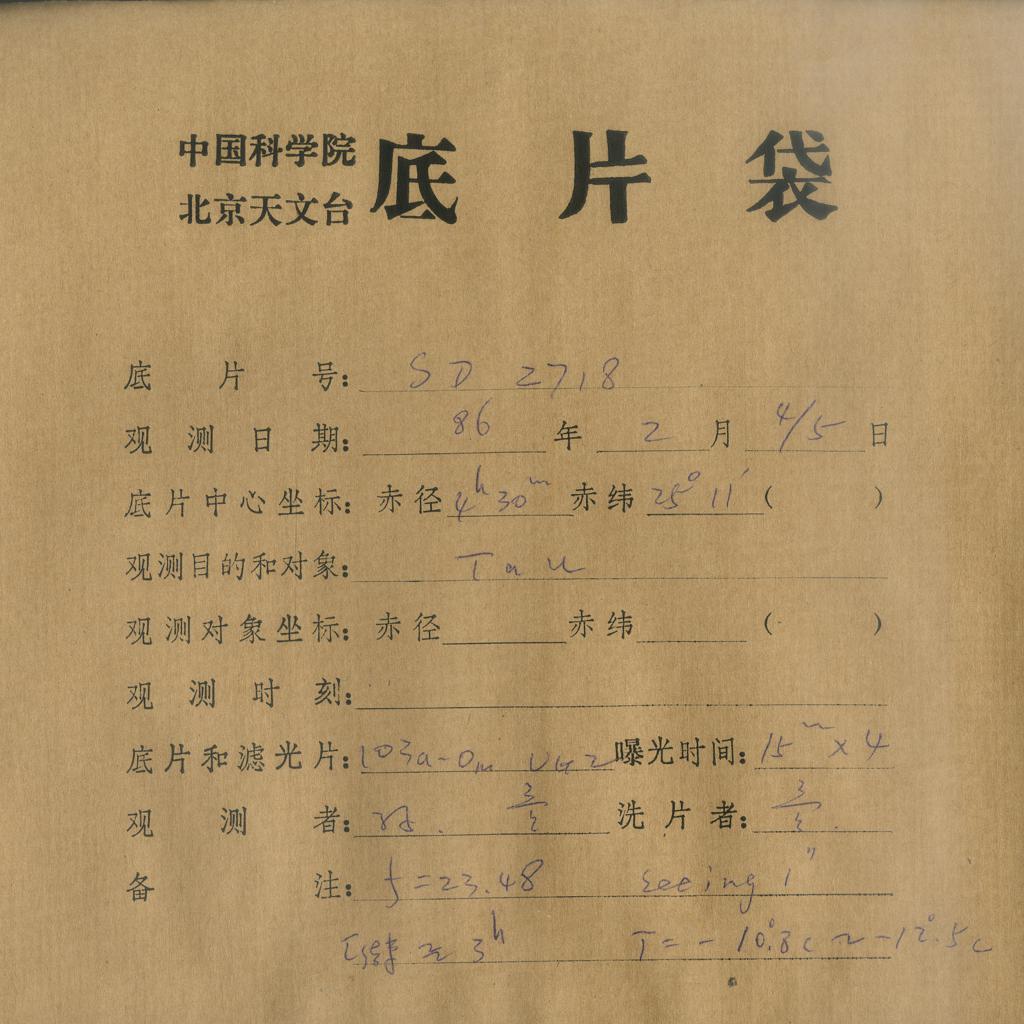 中国科学院
北京天文台
底片袋
底片号: SD 2718
观测日期: 86 年 2 月 4/5 日
底片中心坐标: 赤径 4h 30m 赤纬 25° 11′ ( )
观测目的和对象: Tau
观测对象坐标: 赤径 赤纬 ( )
观测时刻:
底片和滤光片: 103a-O UG2 曝光时间: 15m × 4
观测者: 洗片者:
备注: f=23.48 seeing 1″
3h T=-10°.8c ~ -12°.5c